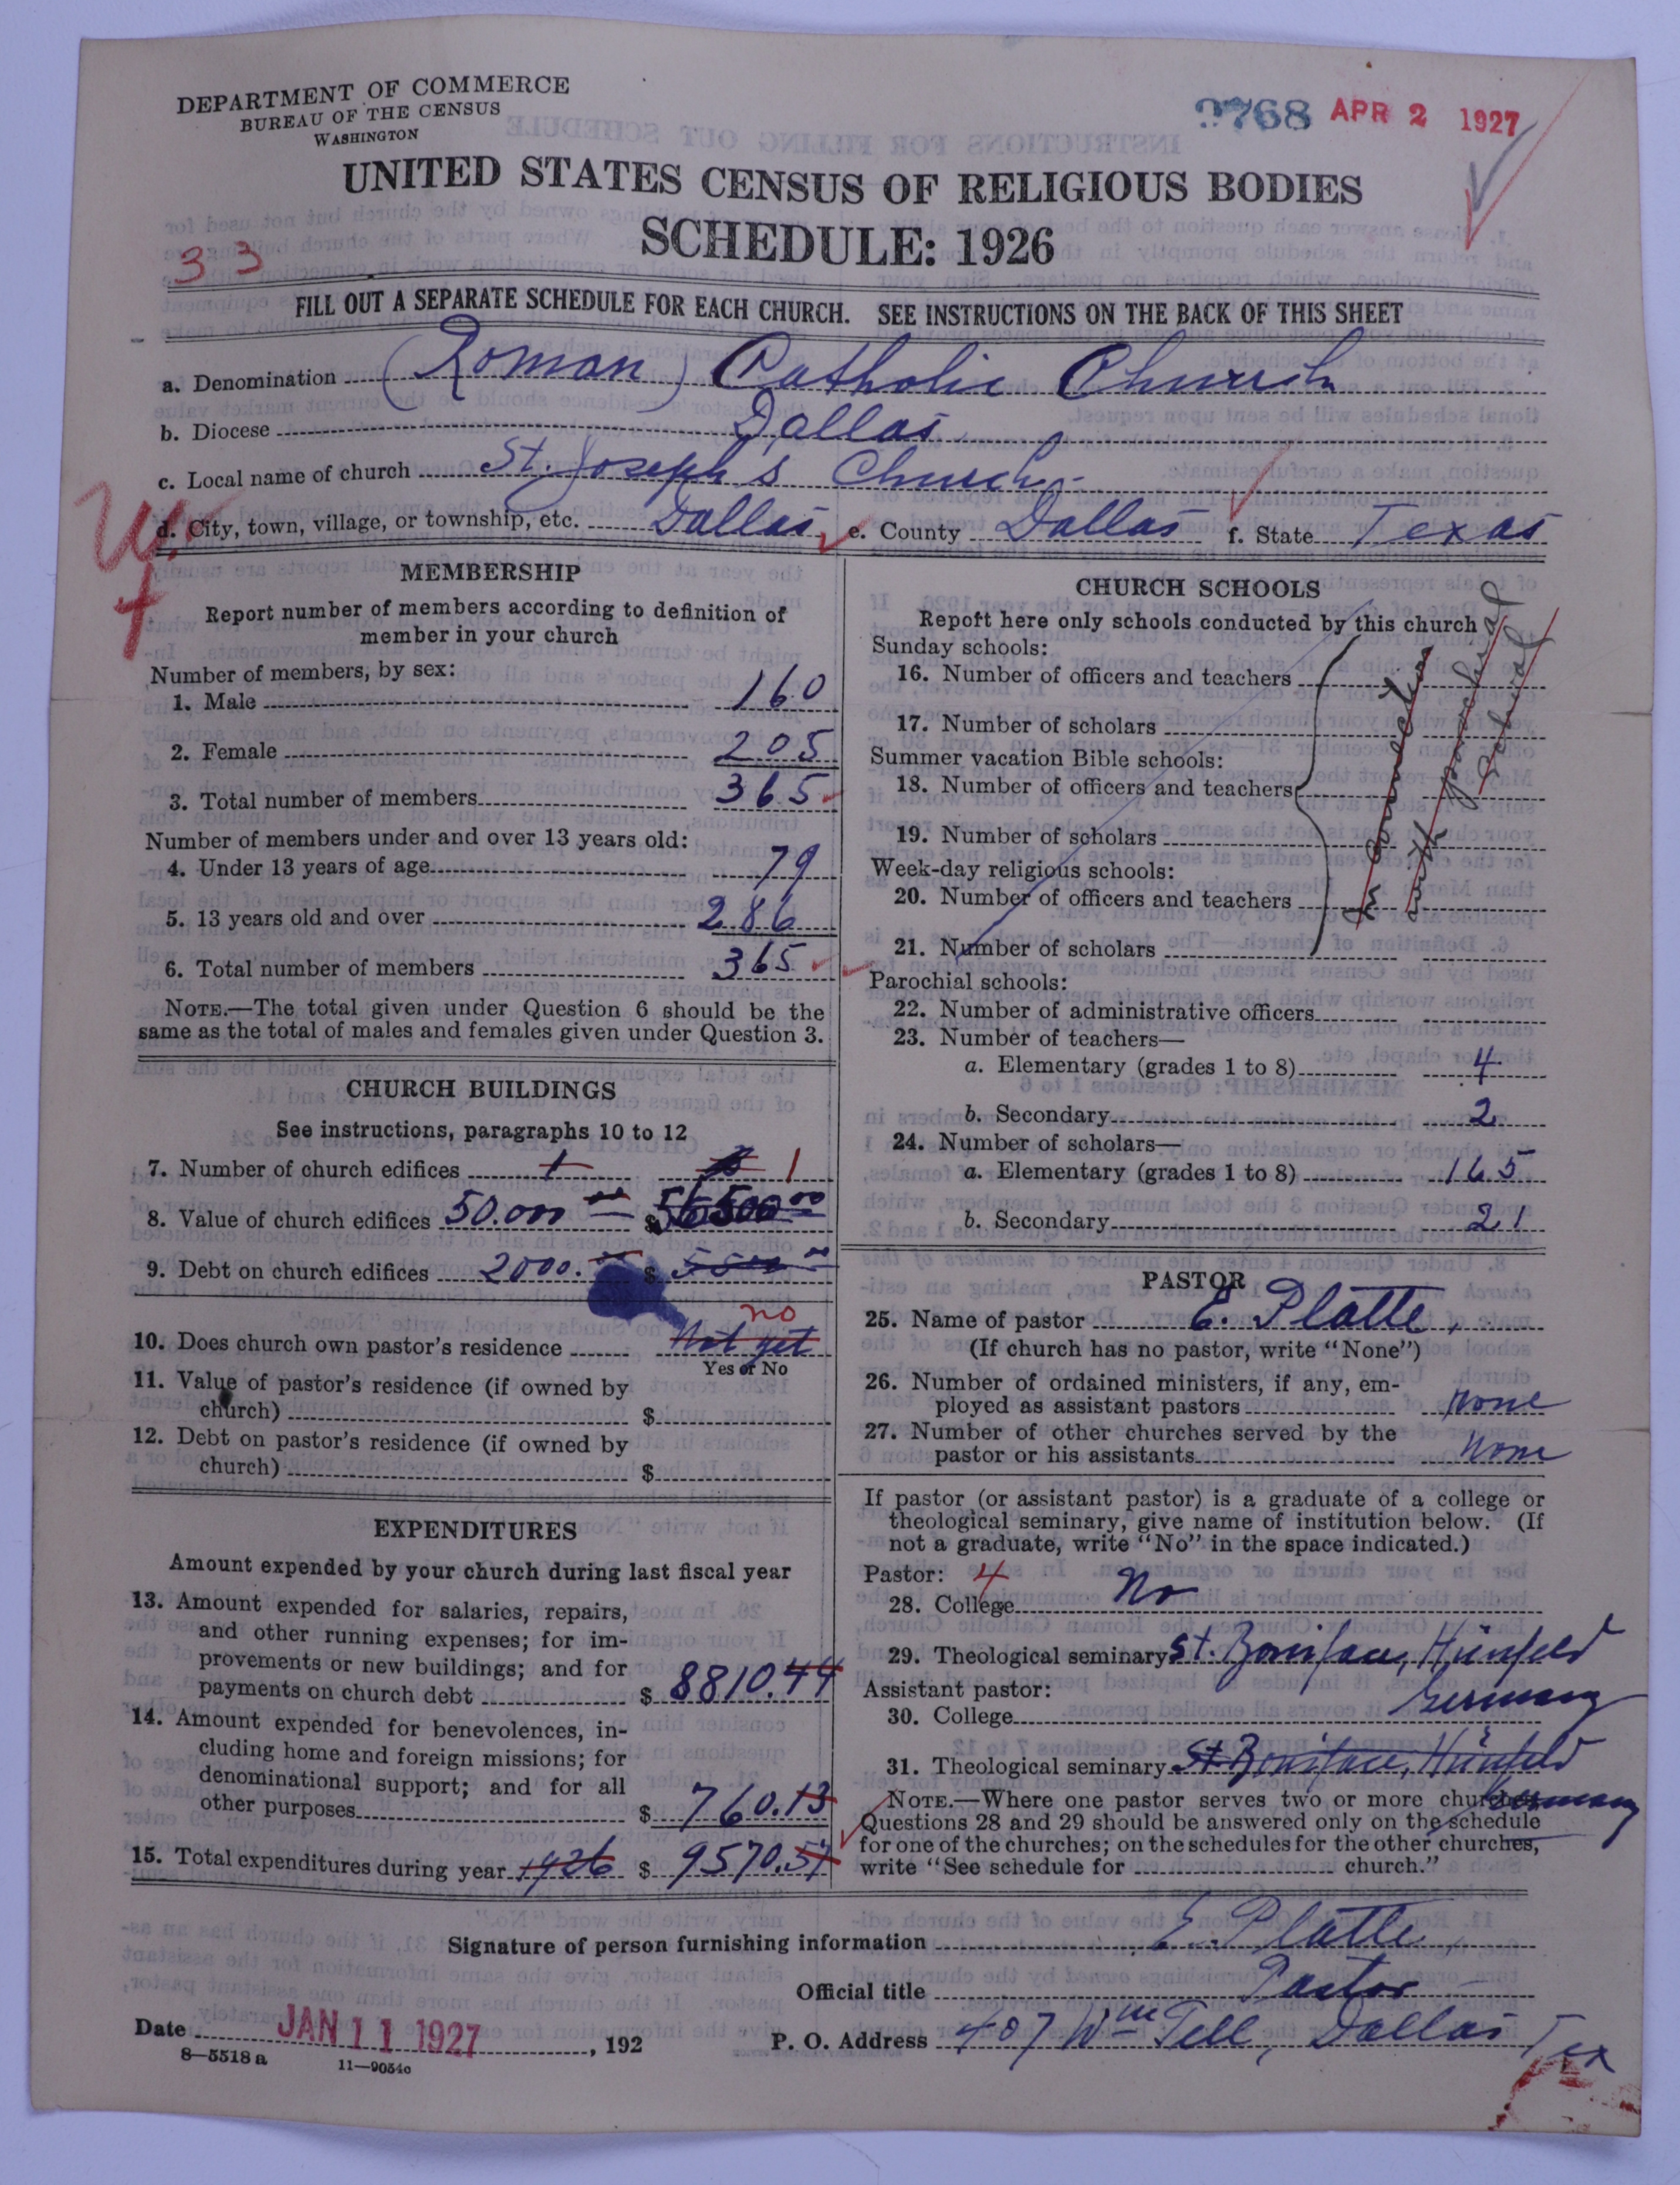 DEPARTMENT OF COMMERCE
BUREAU OF THE CENSUS
WASHINGTON
768 APR 2 1927
UNITED STATES CENSUS OF RELIGIOUS BODIES
SCHEDULE: 1926
33
FILL OUT A SEPARATE SCHEDULE FOR EACH CHURCH. SEE INSTRUCTIONS ON THE BACK OF THIS SHEET
a. Denomination (Roman) Catholic Church
b. Diocese Dallas
c. Local name of church St. Joseph's Church
d. City, town, village, or township, etc. Dallas e. County Dallas f. State Texas
MEMBERSHIP
Report number of members according to definition of
member in your church
Number of members, by sex:
1. Male 160
2. Female 205
3. Total number of members 365
Number of members under and over 13 years old:
4. Under 13 years of age 79
5. 13 years old and over 286
6. Total number of members 365
NOTE.—The total given under Question 6 should be the
same as the total of males and females given under Question 3.
CHURCH BUILDINGS
See instructions, paragraphs 10 to 12
7. Number of church edifices 1 1
8. Value of church edifices 50.000 00 $ 56500 00
9. Debt on church edifices 2000.00 $ 5500 00
no
10. Does church own pastor's residence Not yet
Yes or No
11. Value of pastor's residence (if owned by
church) $
12. Debt on pastor's residence (if owned by
church) $
EXPENDITURES
Amount expended by your church during last fiscal year
13. Amount expended for salaries, repairs,
and other running expenses; for im-
provements or new buildings; and for
payments on church debt $ 8810.44
14. Amount expended for benevolences, in-
cluding home and foreign missions; for
denominational support; and for all
other purposes $ 760.13
15. Total expenditures during year 1926 $ 9570.57
CHURCH SCHOOLS
Report here only schools conducted by this church
Sunday schools:
16. Number of officers and teachers
17. Number of scholars
Summer vacation Bible schools:
18. Number of officers and teachers
19. Number of scholars
Week-day religious schools:
20. Number of officers and teachers
21. Number of scholars
In connection
with parochial
School
Parochial schools:
22. Number of administrative officers
23. Number of teachers—
a. Elementary (grades 1 to 8) 4
b. Secondary 2
24. Number of scholars—
a. Elementary (grades 1 to 8) 165
b. Secondary 21
PASTOR
25. Name of pastor E. Platte,
(If church has no pastor, write "None")
26. Number of ordained ministers, if any, em-
ployed as assistant pastors none
27. Number of other churches served by the
pastor or his assistants none
If pastor (or assistant pastor) is a graduate of a college or
theological seminary, give name of institution below. (If
not a graduate, write "No" in the space indicated.)
Pastor: 4
28. College No
29. Theological seminary St. Boniface, Hünfeld
Germany
Assistant pastor:
30. College
31. Theological seminary St Boniface, Hünfeld
Germany
NOTE.—Where one pastor serves two or more churches
Questions 28 and 29 should be answered only on the schedule
for one of the churches; on the schedules for the other churches,
write "See schedule for church."
Signature of person furnishing information E. Platte,
Official title Pastor
Date JAN 11 1927, 192 P. O. Address 407 Wm Tell, Dallas Tex
8—5518 a 11—9054c